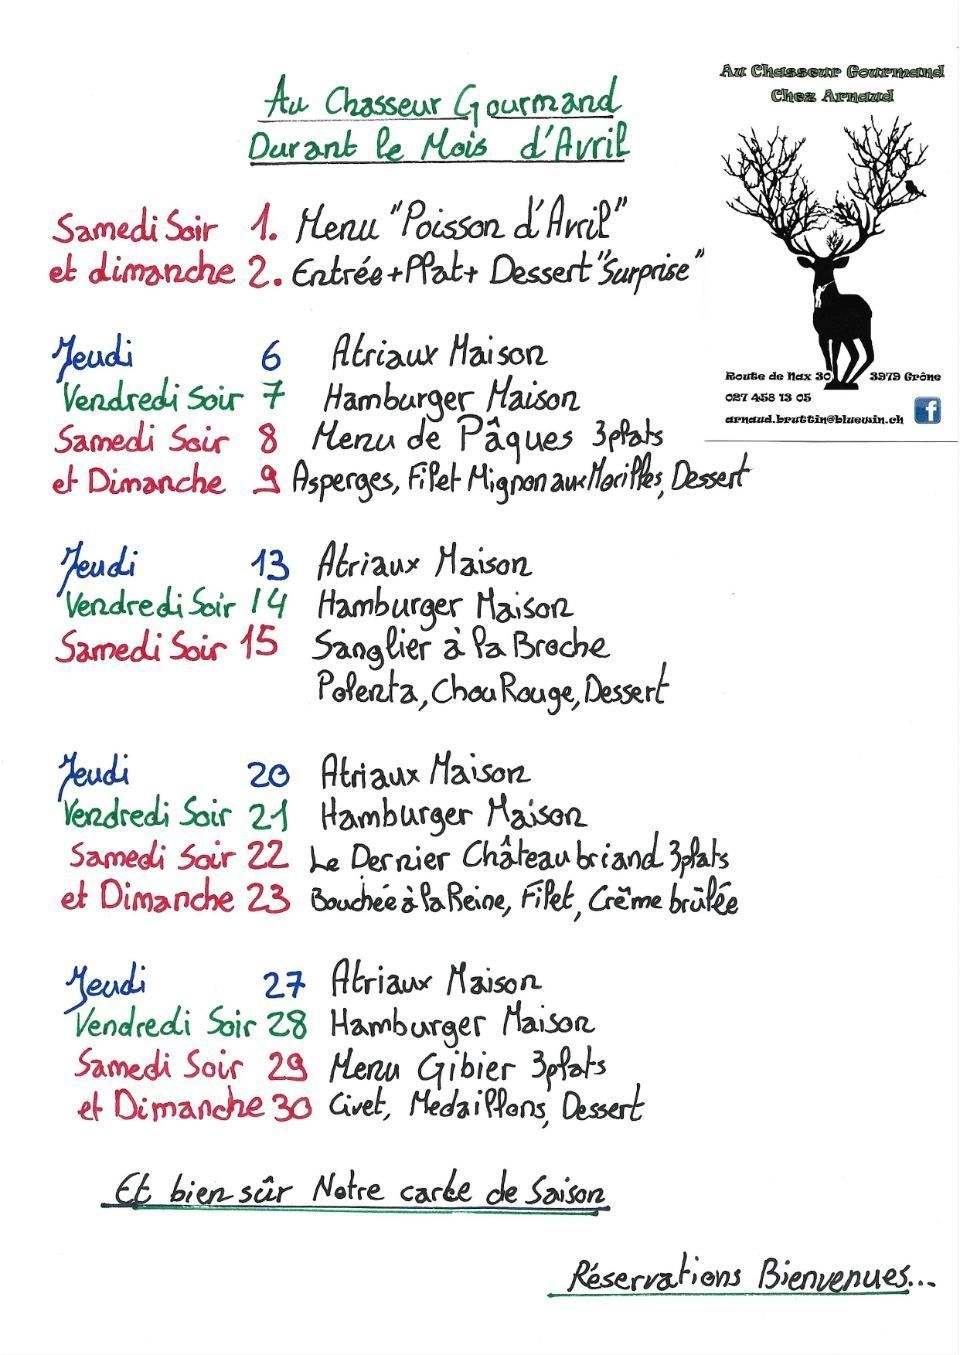 Au Chasseur Gourmand
Durant le Mois d'Avril
Au Chasseur Gourmand
Chez Arnaud
Route de Nax 30 3979 Grône
027 458 13 05
arnaud.bruttin@bluewin.ch
f
Samedi Soir 1. Menu "Poisson d'Avril"
et dimanche 2. Entrée+Plat+ Dessert "Surprise"
Jeudi 6 Atriaux Maison
Vendredi Soir 7 Hamburger Maison
Samedi Soir 8 Menu de Pâques 3plats
et Dimanche 9 Asperges, Filet Mignon aux Morilles, Dessert
Jeudi 13 Atriaux Maison
Vendredi Soir 14 Hamburger Maison
Samedi Soir 15 Sanglier à la Broche
Polenta, Chou Rouge, Dessert
Jeudi 20 Atriaux Maison
Vendredi Soir 21 Hamburger Maison
Samedi Soir 22 Le Dernier Châteaubriand 3plats
et Dimanche 23 Bouchée à la Reine, Filet, Crême brûlée
Jeudi 27 Atriaux Maison
Vendredi Soir 28 Hamburger Maison
Samedi Soir 29 Menu Gibier 3plats
et Dimanche 30 Civet, Medaillons, Dessert
Et bien sûr Notre carte de Saison
Réservations Bienvenues...